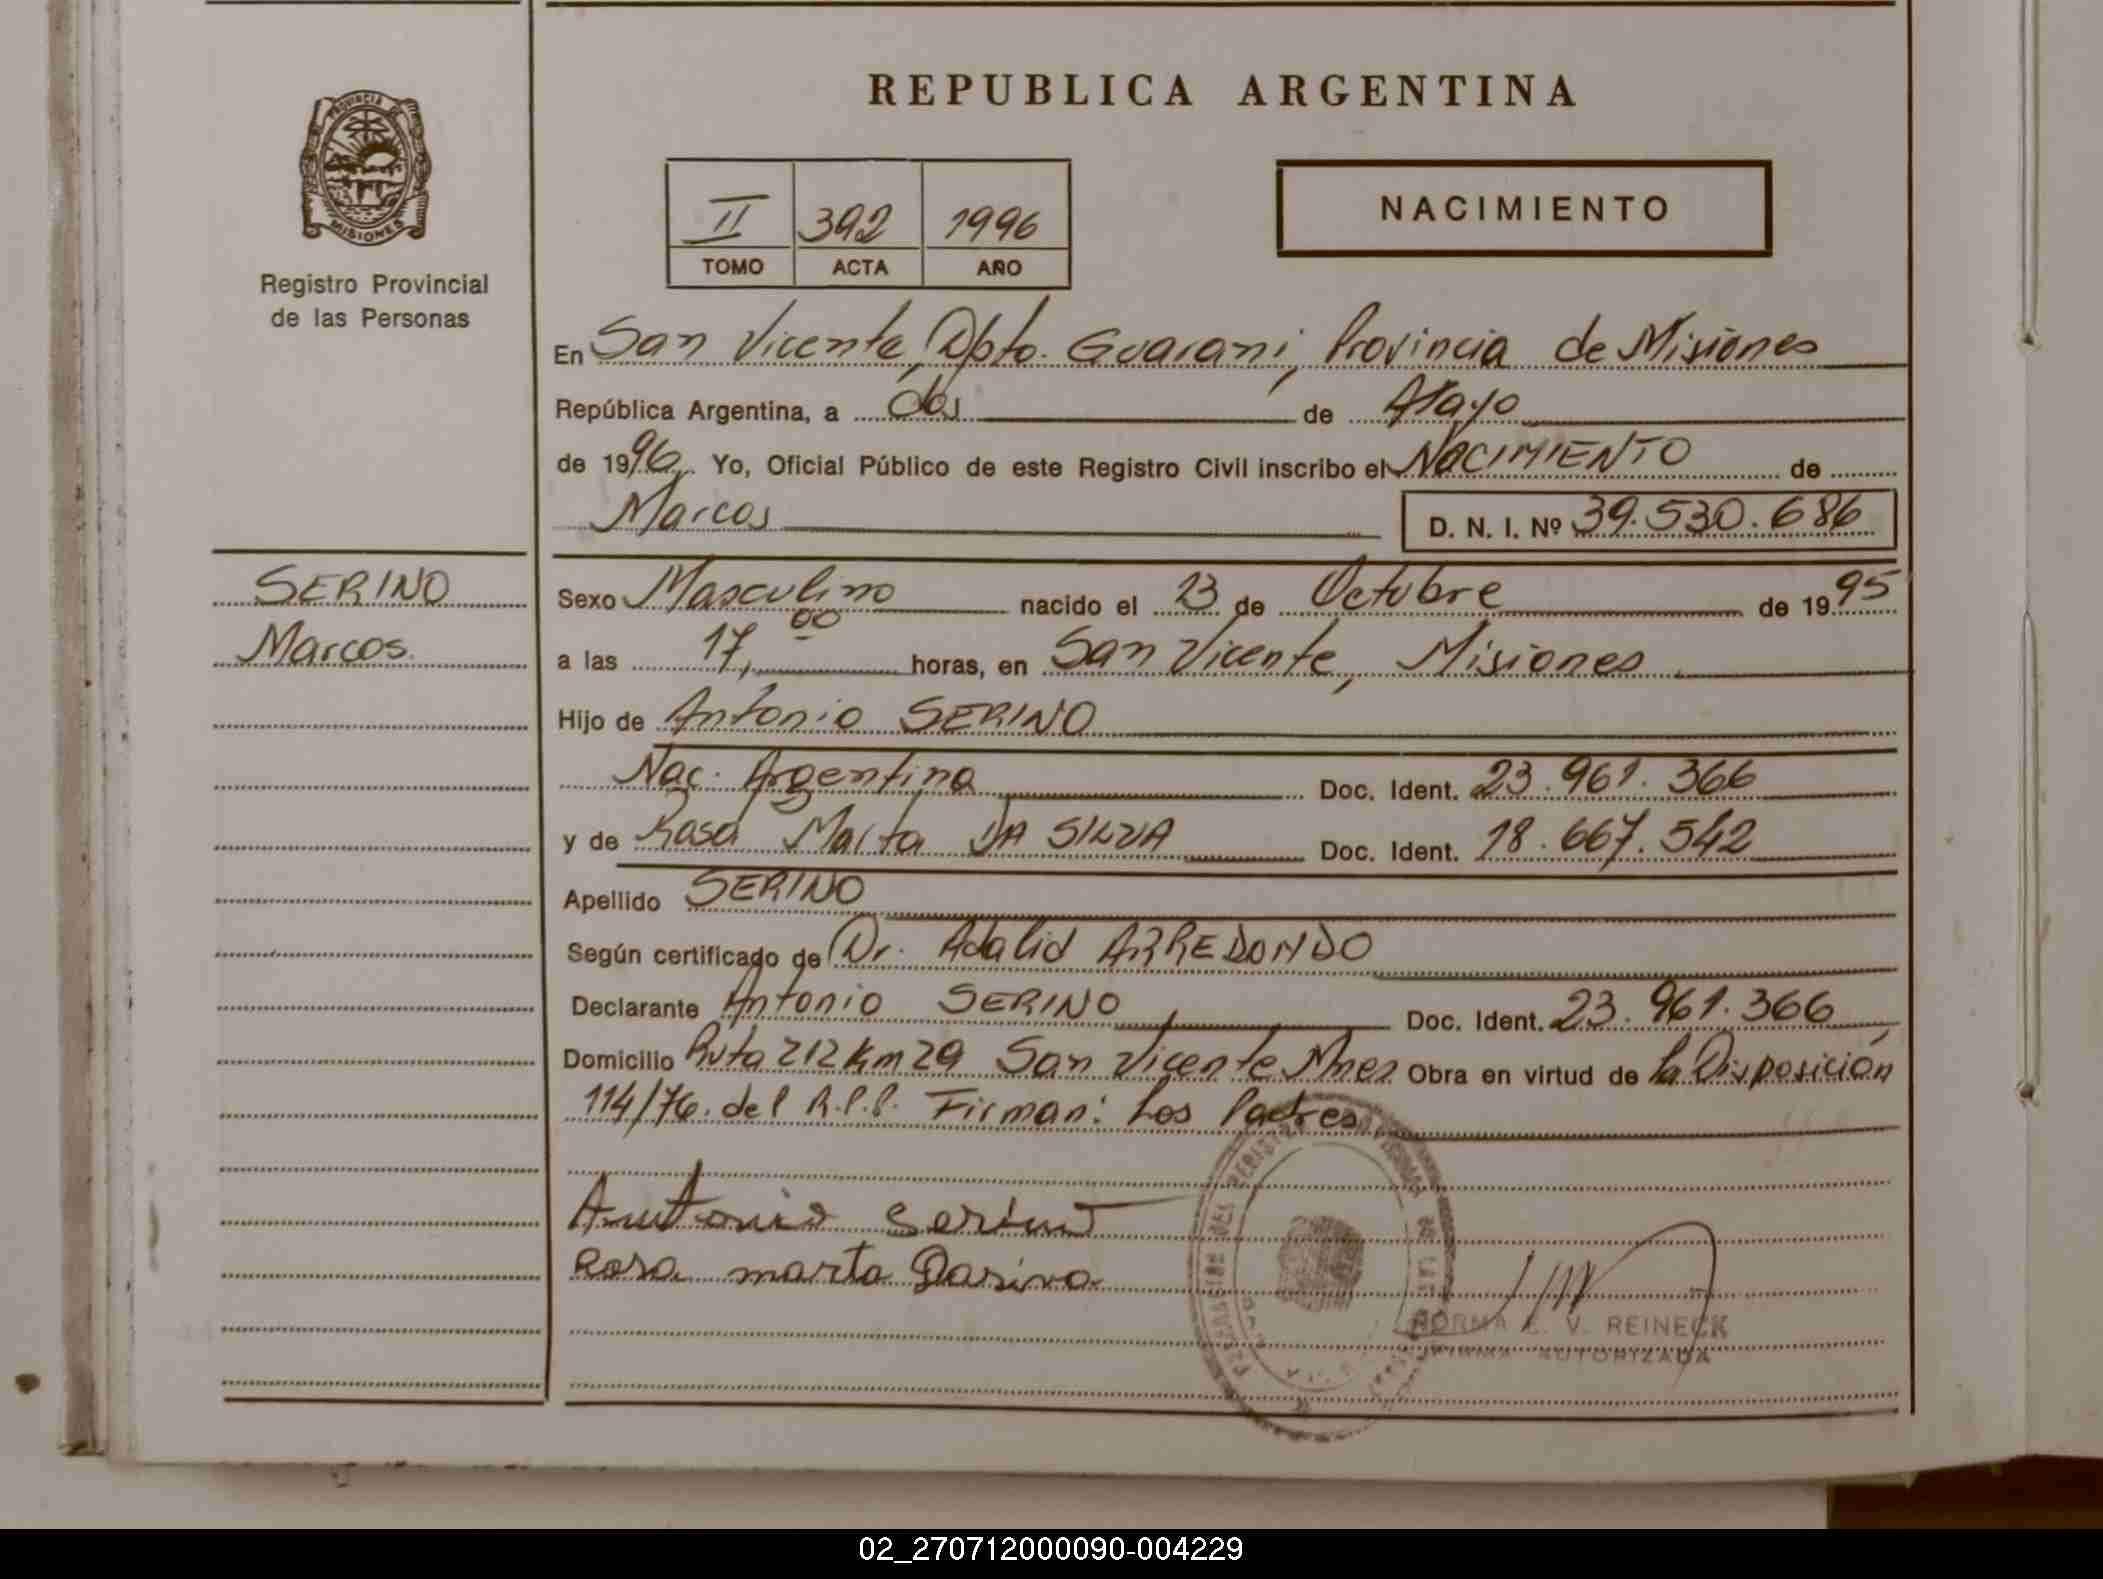 REPUBLICA ARGENTINA
PROVINCIA DE
MISIONES
Registro Provincial
de las Personas
II 392 1996
TOMO ACTA AÑO
NACIMIENTO
En San Vicente, Dpto. Guarani, Provincia de Misiones
República Argentina, a dos de Mayo
de 1996. Yo, Oficial Público de este Registro Civil inscribo el NACIMIENTO de
Marcos D. N. I. Nº 39.530.686
SERINO
Marcos.
Sexo Masculino nacido el 23 de Octubre de 1995
a las 17,00 horas, en San Vicente, Misiones
Hijo de Antonio SERINO
Nac. Argentina Doc. Ident. 23.961.366
y de Rosa Marta DA SILVA Doc. Ident. 18.667.542
Apellido SERINO
Según certificado de Dr. Adalid ARREDONDO
Declarante Antonio SERINO Doc. Ident. 23.961.366
Domicilio Ruta 212 Km 29 San Vicente Mnes Obra en virtud de la Disposición
114/76. del R.P.P. Firman: Los Padres
Antonio Serino
Rosa marta Dasirva
NORMA L. V. REINECK
FIRMA AUTORIZADA
02_270712000090-004229